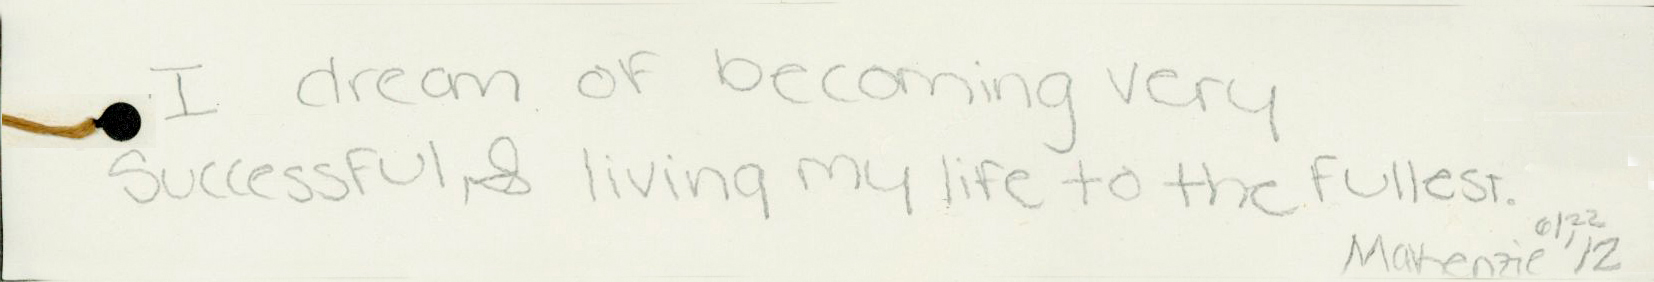 I dream of becoming very
successful, & living my life to the fullest.
Makenzie 6/22/12